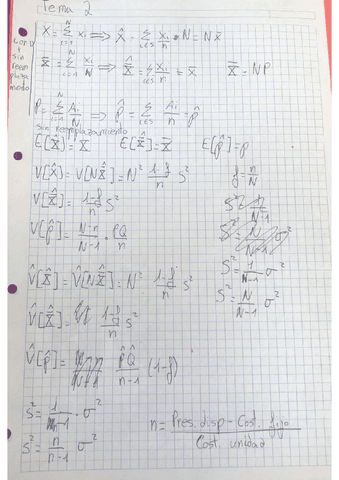 Tema 2
con y sin reemplazamiento
X = Σ_{i=1}^{N} x_i ⟹ X̂ = Σ_{i∈s} x_i/n · N = N x̄
X̄ = Σ_{i=1}^{N} x_i/N ⟹ X̄̂ = Σ_{i∈s} x_i/n = x̄
P = Σ_{i=1}^{N} A_i/N ⟹ P̂ = Σ_{i∈s} A_i/n = p̂
sin reemplazamiento
E[X̂] = X E[X̄̂] = X̄ E[p̂] = p
V[X̂] = V[N X̄̂] = N² (1-f)/n S² f = n/N
V[X̄̂] = (1-f)/n S²
V[p̂] = (N-n)/(N-1) · PQ/n
S² = 1/(N-1) σ²
S² = N/(N-1) σ²
V̂[X̂] = V̂[N X̄̂] = N² (1-f)/n s²
V̂[X̄̂] = (1-f)/n s²
V̂[p̂] = P̂Q̂/(n-1) (1-f)
s² = 1/(n-1) · σ²
s² = n/(n-1) σ²
n = (Pres. disp - Cost. fijo)/(Cost. unidad)